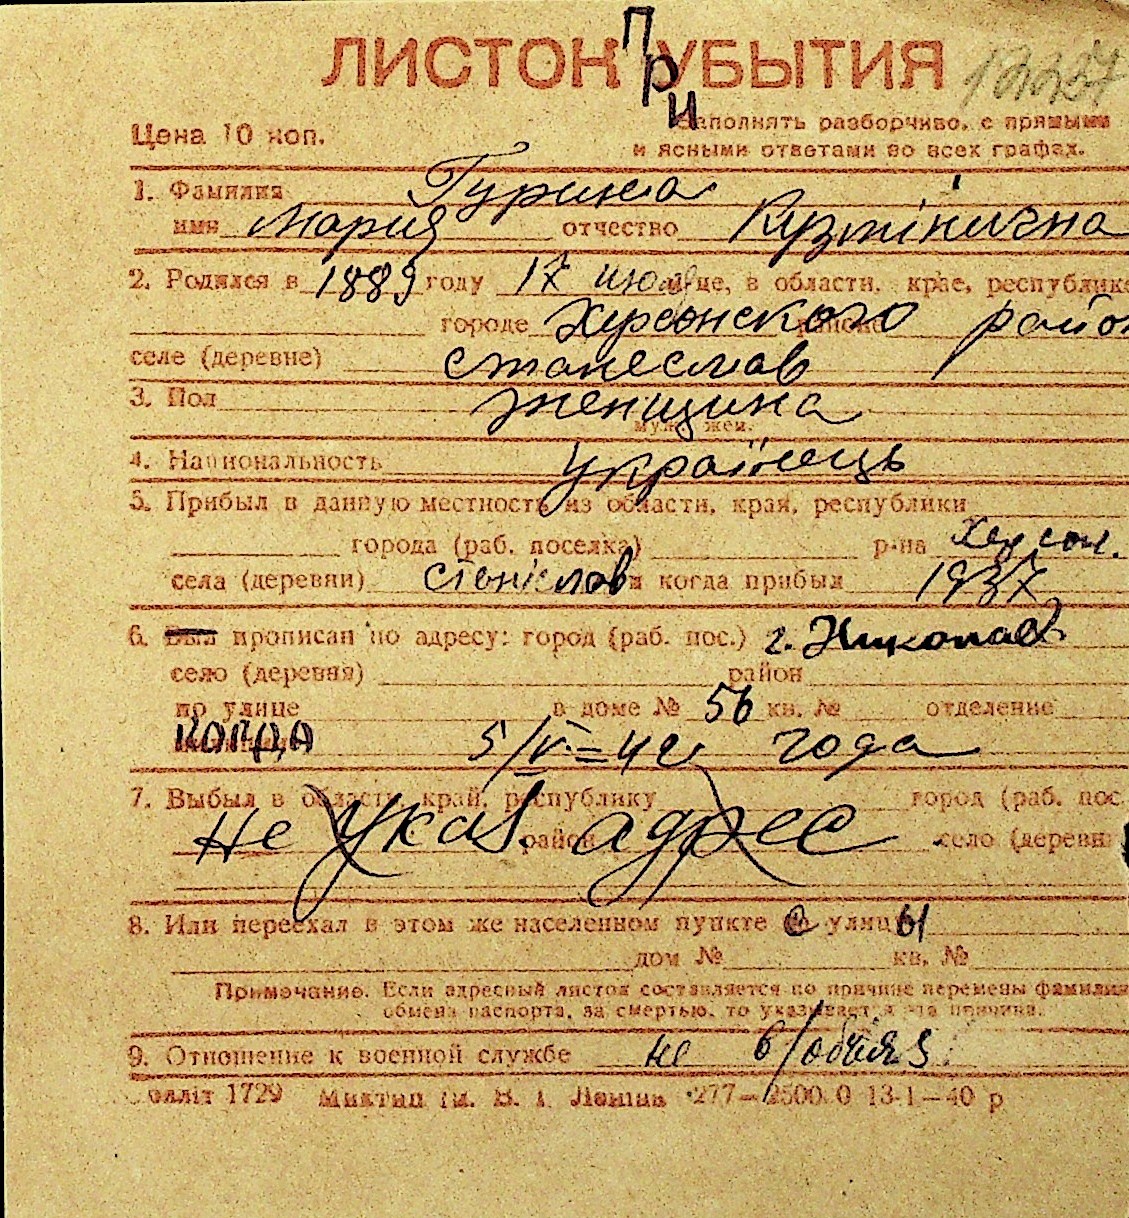 ЛИСТОК ПРИ УБЫТИЯ
Цена 10 коп.
Заполнять разборчиво, с прямыми
и ясными ответами во всех графах.
1. Фамилия Гурина
имя Мария отчество Кузмінична
2. Родился в 1889 году 17 июля м-це, в области, крае, республике
городе Херсонского районе район
селе (деревне) станеслав
3. Пол женщина
муж. жен.
4. Национальность Українець
5. Прибыл в данную местность из области, края, республики
города (раб. поселка) р-на Херсон.
села (деревни) Станіслав и когда прибыл 1937
6. Был прописан по адресу: город (раб. пос.) г. Николаев
село (деревня) район
по улице в доме № 56 кв. № отделение
КОГДА 5/V-42 года
7. Выбыл в область, край, республику город (раб. пос.
не указ. район адрес село (деревн
8. Или переехал в этом же населенном пункте с улицы
дом № кв. №
Примечание. Если адресный листок составляется по причине перемены фамилии
обмена паспорта, за смертью, то указывает я эта причина.
9. Отношение к военной службе не в/обяз
олліт 1729 Миктип ім. В. І. Леніна 277—2500.0 13-1—40 р